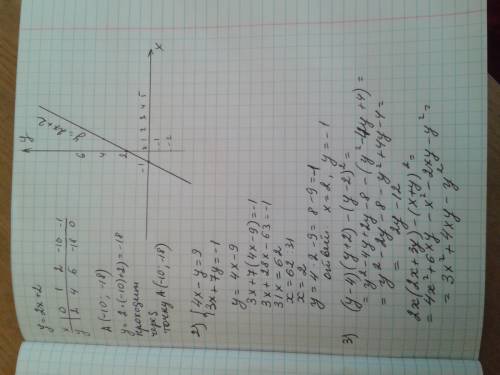 y = 2x+2
x | 0 | 1 | 2 | -10 | -1
y | 2 | 4 | 6 | -18 | 0
A (-10; -18)
y = 2·(-10)+2) = -18
проходит
через
точку A(-10; -18)
y
6
4
2
-1
1 2 3 4 5
x
-1
-2
y=2x+2
2) { 4x - y = 9
3x + 7y = -1
y = 4x - 9
3x + 7(4x - 9) = -1
3x + 28x - 63 = -1
31x = 62
x = 62:31
x = 2
y = 4·2 - 9 = 8 - 9 = -1
ответ: x = 2, y = -1
3) (y-4)(y+2) - (y-2)² =
= y² - 4y + 2y - 8 - (y² - 4y + 4) =
= y² - 2y - 8 - y² + 4y - 4 =
= 2y - 12
2x(2x+3y) - (x+y)² =
= 4x² + 6xy - x² - 2xy - y² =
= 3x² + 4xy - y²